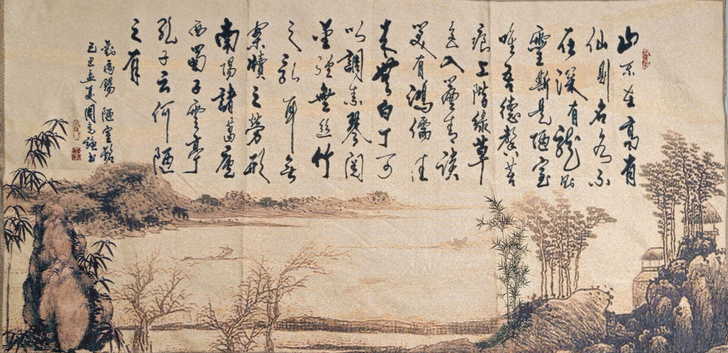 山不在高有
仙則名水不
在深有龍則
靈斯是陋室
唯吾德馨苔
痕上階綠草
色入簾青談
笑有鴻儒往
來無白丁可
以調素琴閱
金經無絲竹
之亂耳無
案牘之勞形
南陽諸葛廬
西蜀子雲亭
孔子云何陋
之有
劉禹錫 陋室銘
己丑孟夏周克強書